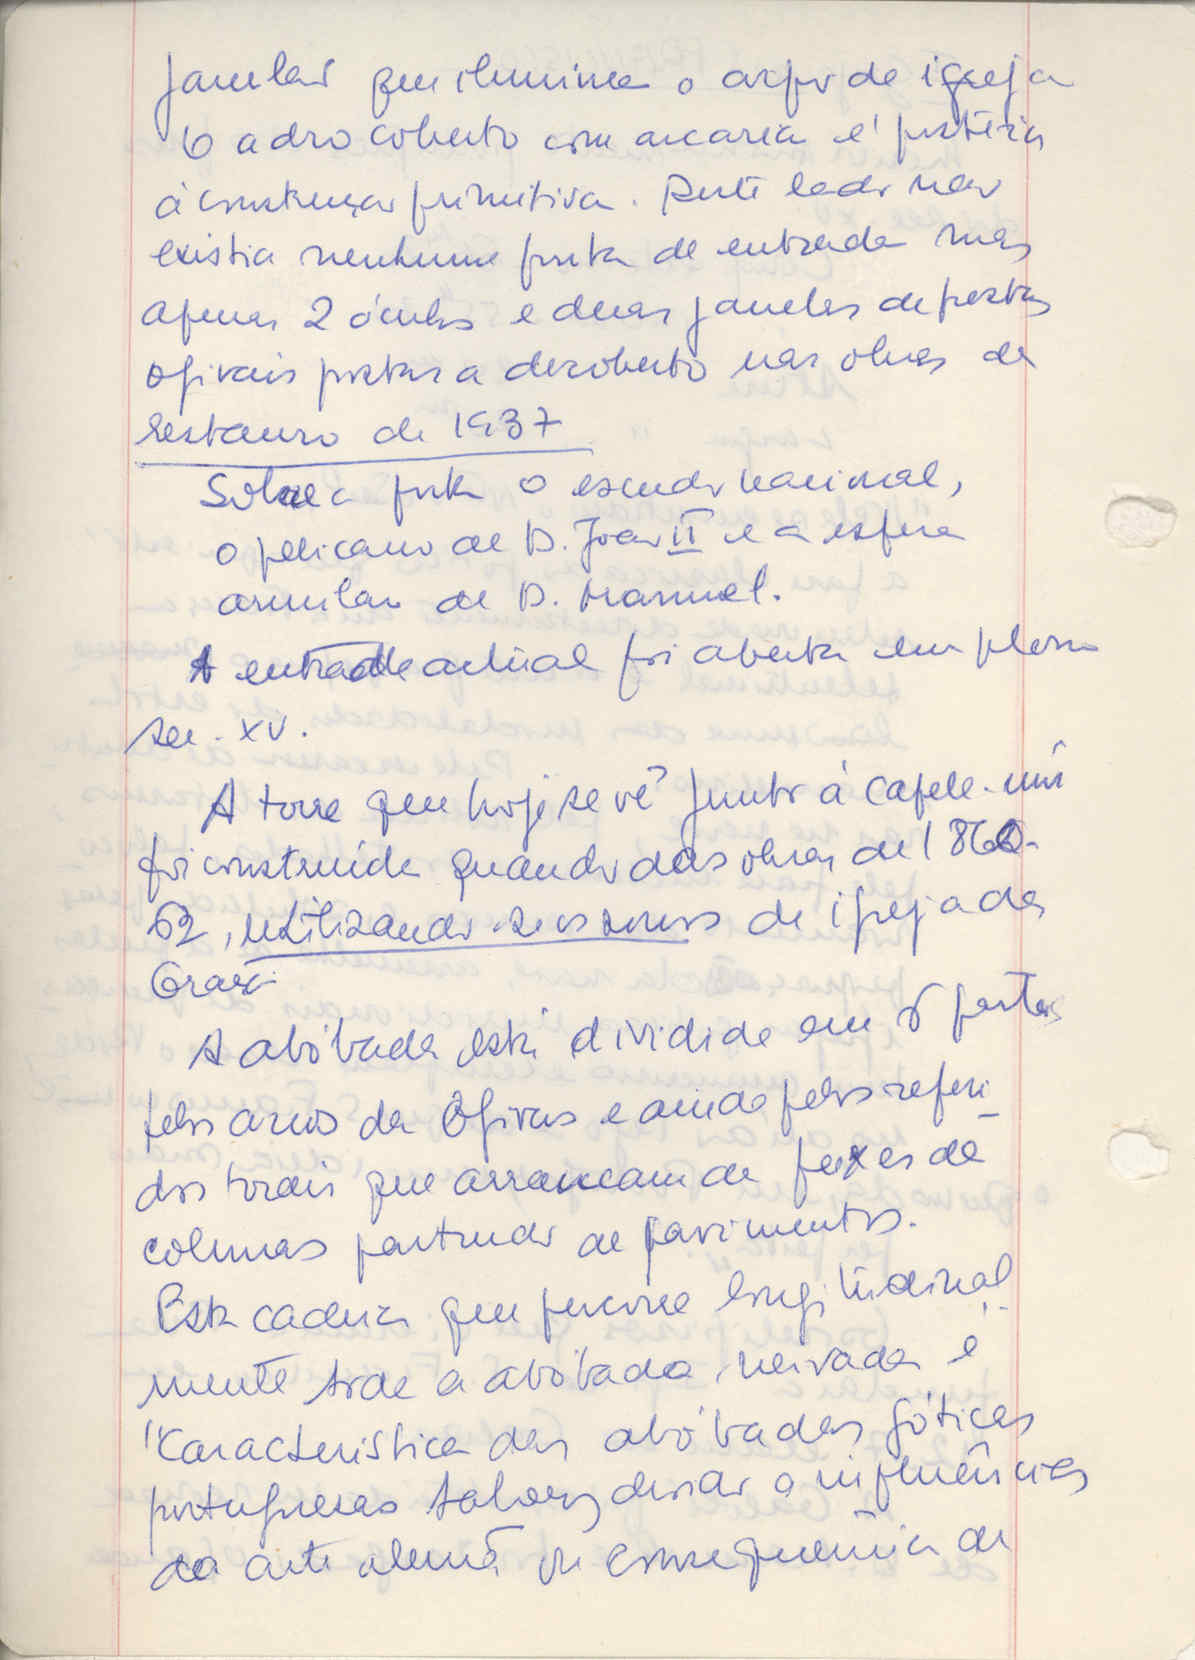 janelas que ilumina o corpo da igreja
O adro coberto com arcaria é posterior
à construção primitiva. Deste lado não
existia nenhuma porta de entrada mas
apenas 2 óculos e duas janelas de frestas
ogivais postas a descoberto nas obras de
restauro de 1937
Sobre a porta o escudo nacional,
o pelicano de D. João II e a esfera
armilar de D. Manuel.
A entrada actual foi aberta em pleno
sec. XV.
A torre que hoje se vê junto à capela-mór
foi construída quando das obras de 1860-
62, utilizando-se os sinos da igreja da
Graça
A abóbada está dividida em 8 partes
pelos arcos da Ogivas e ainda pelos referi-
dos torais que arrancam de feixes de
colunas partindo de pavimentos.
Esta cadeia que percorre longitudinal-
mente toda a abóbada nervada é
"característica das abóbadas góticas
portuguesas talvez devido a influências
da arte alemã ou consequência de